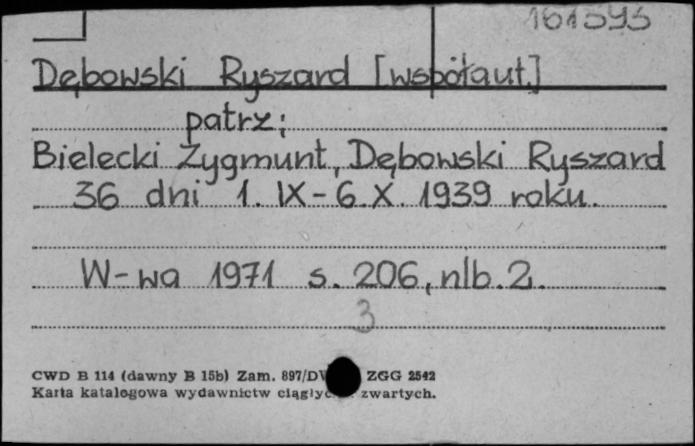 161593
Dębowski Ryszard [współaut.]
patrz:
Bielecki Zygmunt, Dębowski Ryszard
36 dni 1. IX-6. X. 1939 roku.
W-wa 1971 s. 206, nlb. 2.
3
CWD B 114 (dawny B 15b) Zam. 897/D ZGG 2542
Karta katalogowa wydawnictw zwartych.